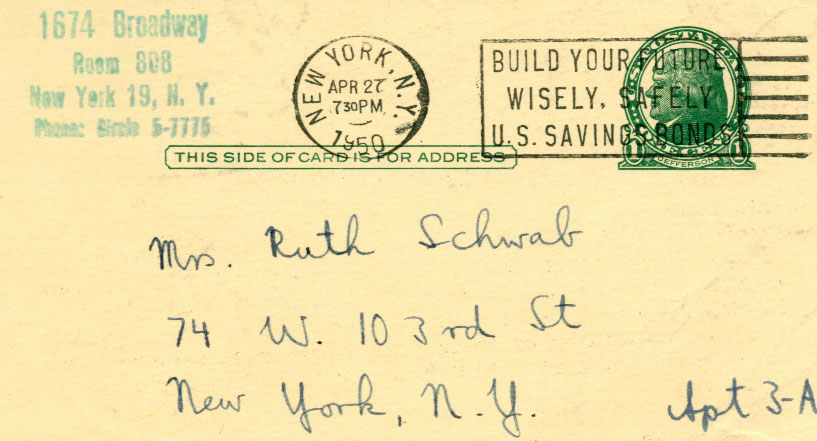 1674 Broadway
Room 808
New York 19, N. Y.
Phone: Circle 5-7775
NEW YORK, N.Y.
APR 27
730PM
1950
BUILD YOUR FUTURE
WISELY, SAFELY
U.S. SAVINGS BONDS
JEFFERSON
THIS SIDE OF CARD IS FOR ADDRESS
Mrs. Ruth Schwab
74 W. 103rd St
New York, N.Y. Apt 3-A